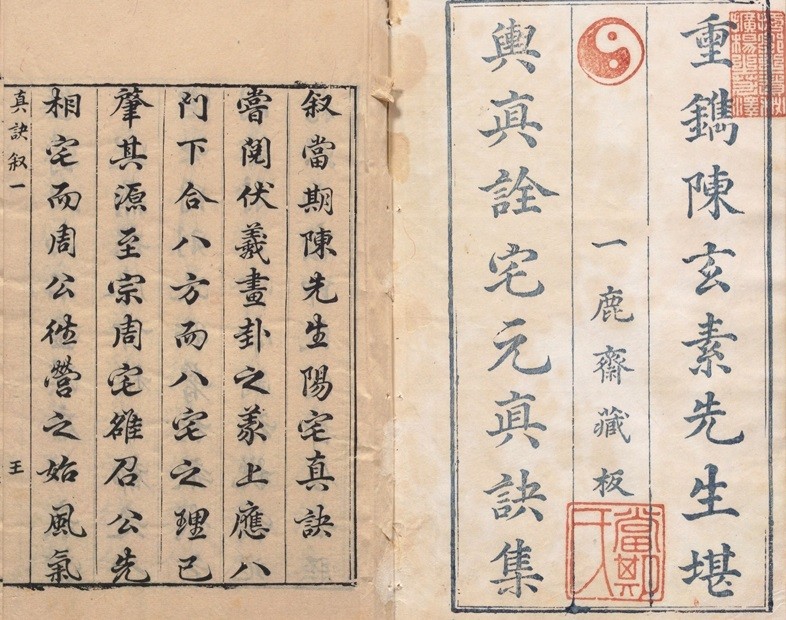 重鐫陳玄素先生堪
一鹿齋藏板
輿真詮宅元真訣集
叙當期陳先生陽宅真訣
嘗閱伏羲畫卦之上應八
門下合八方而八宅之理已
肇其源至宗周宅雒召公先
相宅而周公徃營之始風氣
真訣叙一
王